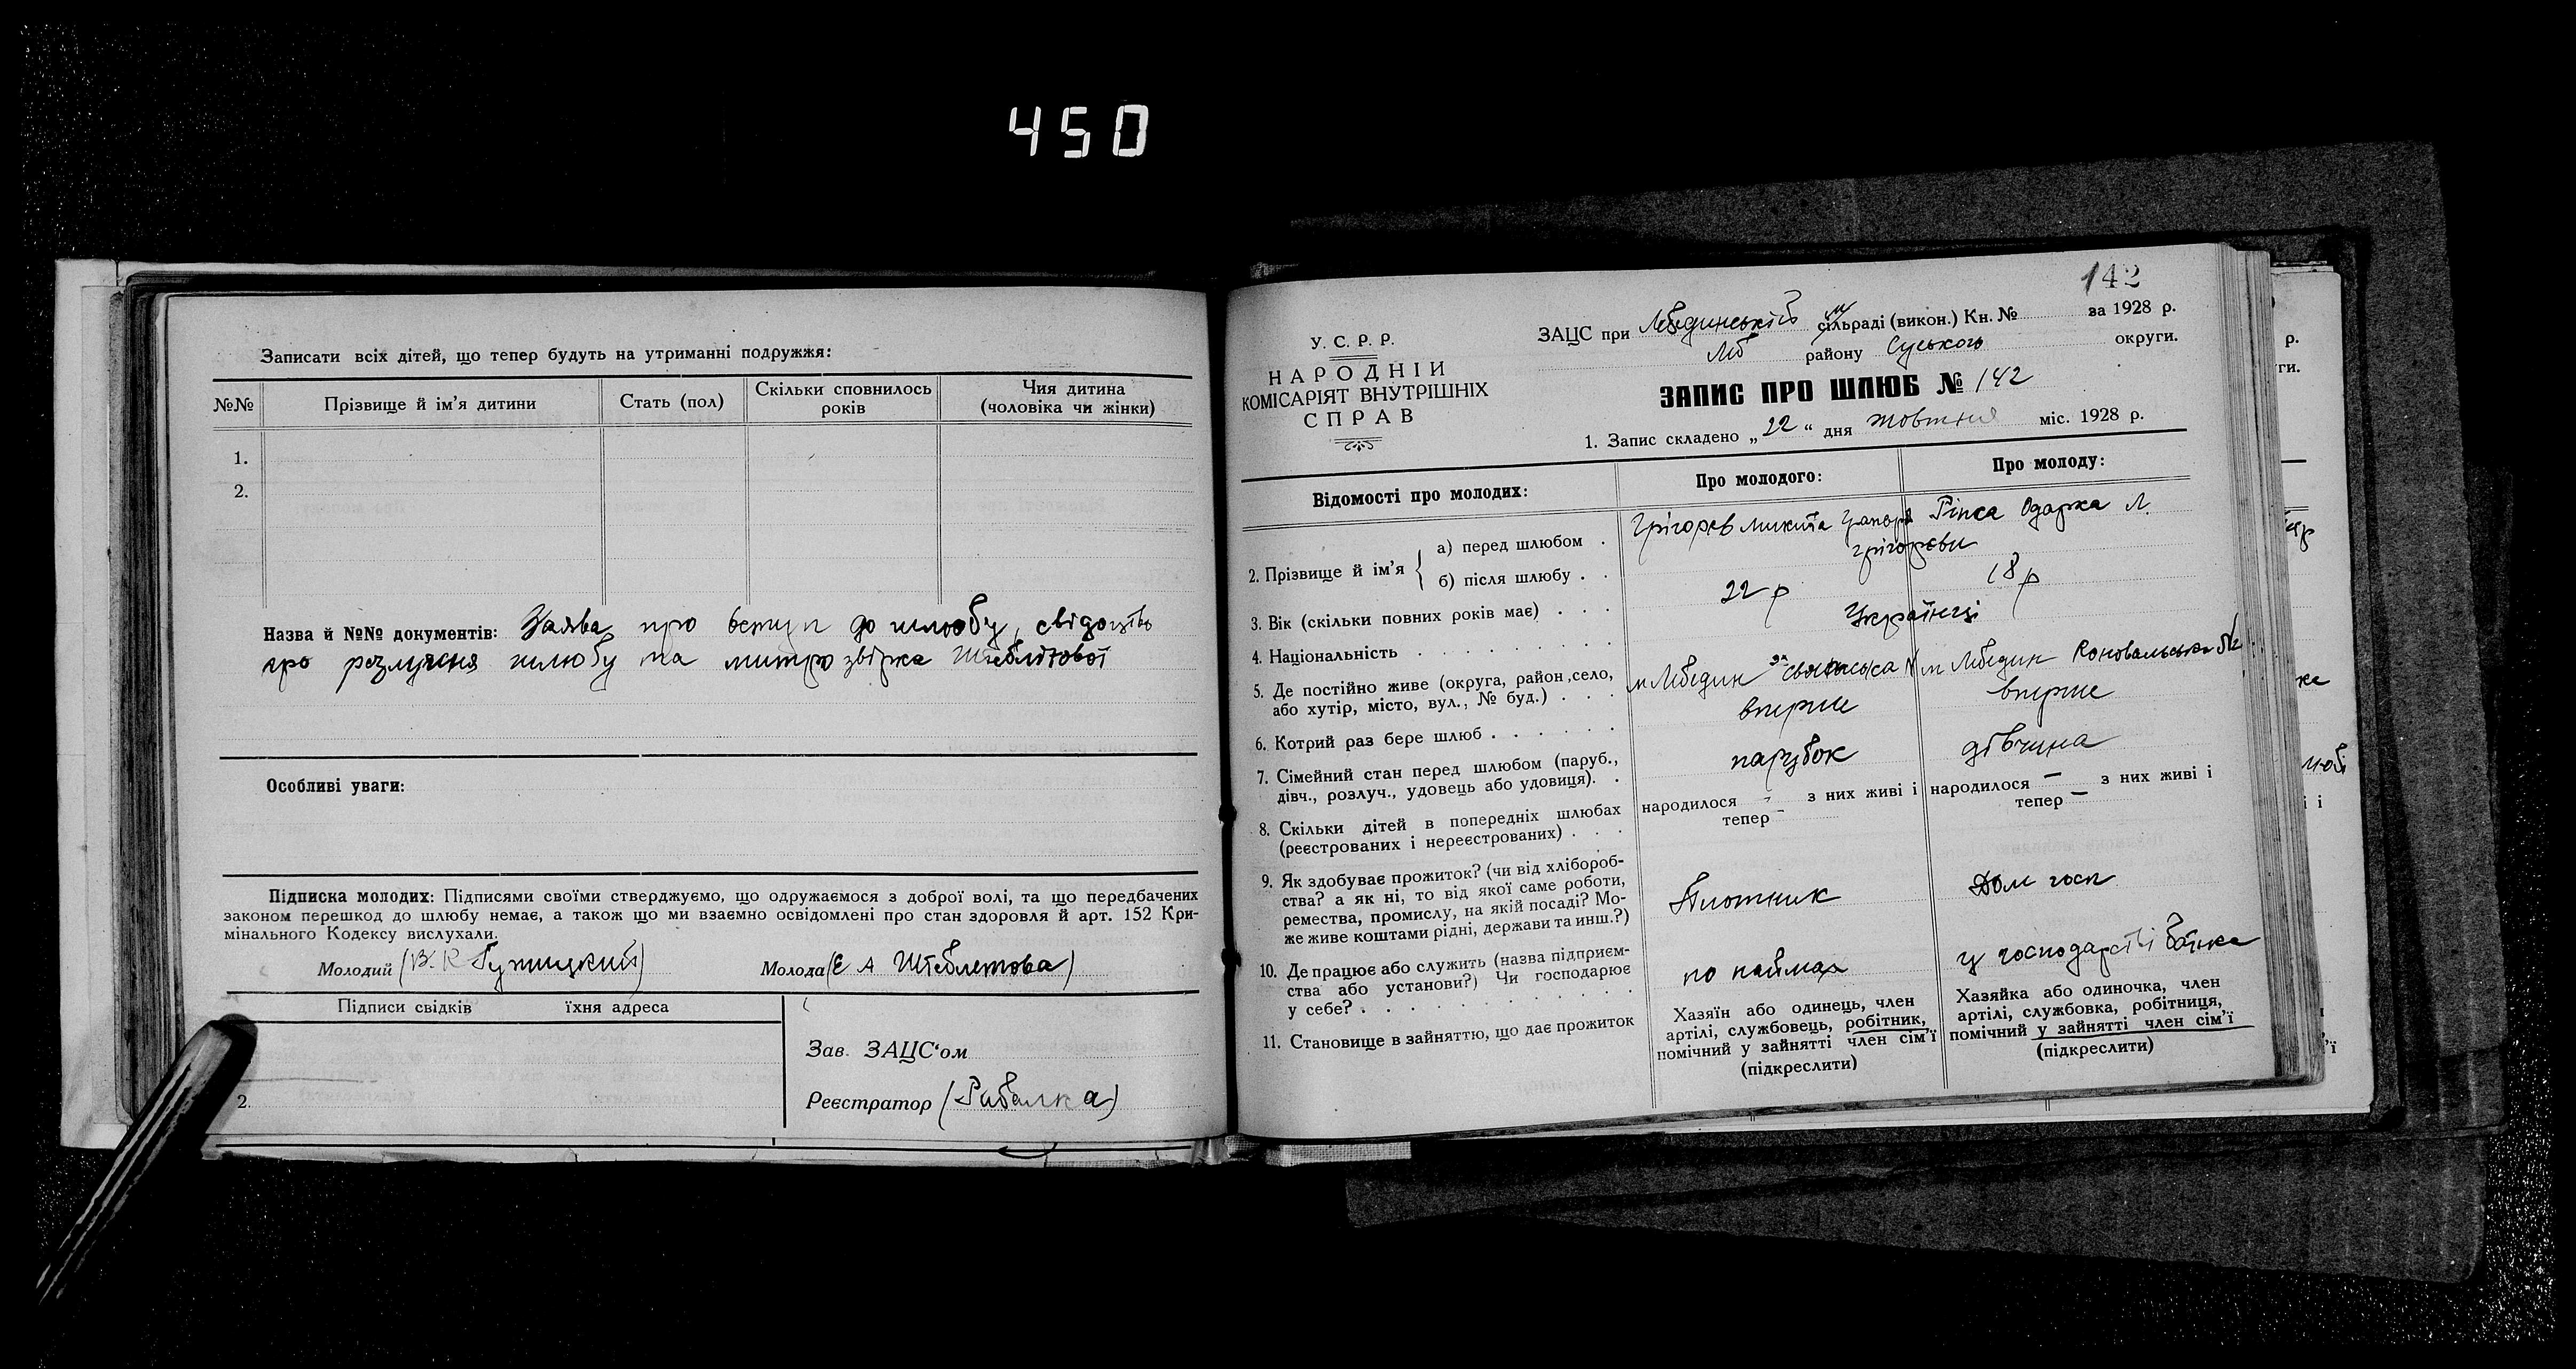 450
Записати всіх дітей, що тепер будуть на утриманні подружжя:
№№ Прізвище й ім'я дитини Стать (пол) Скільки сповнилось років Чия дитина (чоловіка чи жінки)
1.
2.
Назва й №№ документів: Заява про вступ до шлюбу, свідоцтво
про розлучення шлюбу та
Особливі уваги:
Підписка молодих: Підписями своїми стверджуємо, що одружаємося з доброї волі, та що передбачених
законом перешкод до шлюбу немає, а також що ми взаємно освідомлені про стан здоровля й арт. 152 Кри-
мінального Кодексу вислухали.
Молодий Молода (Е А Штеблетова)
Підписи свідків їхня адреса
Зав. ЗАЦС'ом
2.
Реєстратор (Рибалка)
142
У. С. Р. Р.
НАРОДНІЙ
КОМІСАРІЯТ ВНУТРІШНІХ
СПРАВ
ЗАЦС при Лебединській м сільраді (викон.) Кн. № за 1928 р.
Леб району Сумського округи.
ЗАПИС ПРО ШЛЮБ № 142
1. Запис складено „22“ дня жовтня міс. 1928 р.
Відомості про молодих: Про молодого: Про молоду:
2. Прізвище й ім'я
а) перед шлюбом . Грігорєв Микита Ріпка Одарка Л.
б) після шлюбу . . Грігорєви
3. Вік (скільки повних років має) . . . 22 р 18 р
4. Національність . . . . . . . . . Українці
5. Де постійно живе (округа, район, село,
або хутір, місто, вул., № буд.) . . . м Лебедин м Лебедин Коновальська
6. Котрий раз бере шлюб . . . . . . вперше вперше
7. Сімейний стан перед шлюбом (паруб.,
дівч., розлуч., удовець або удовиця). . парубок дівчина
8. Скільки дітей в попередніх шлюбах
(реєстрованих і нереєстрованих) . . .
народилося - з них живі і
тепер -
народилося — з них живі і
тепер —
9. Як здобуває прожиток? (чи від хлібороб-
ства? а як ні, то від якої саме роботи,
ремества, промислу, на якій посаді? Мо-
же живе коштами рідні, держави та инш.?)
Плотник
Дом госп
10. Де працює або служить (назва підприєм-
ства або установи?) Чи господарює
у себе? . . . . . . . . . .
по наймах
у господарстві батька
11. Становище в зайняттю, що дає прожиток
Хазяїн або одинець, член
артілі, службовець, робітник,
помічний у зайнятті член сім'ї
(підкреслити)
Хазяйка або одиночка, член
артілі, службовка, робітниця,
помічний у зайнятті член сім'ї
(підкреслити)